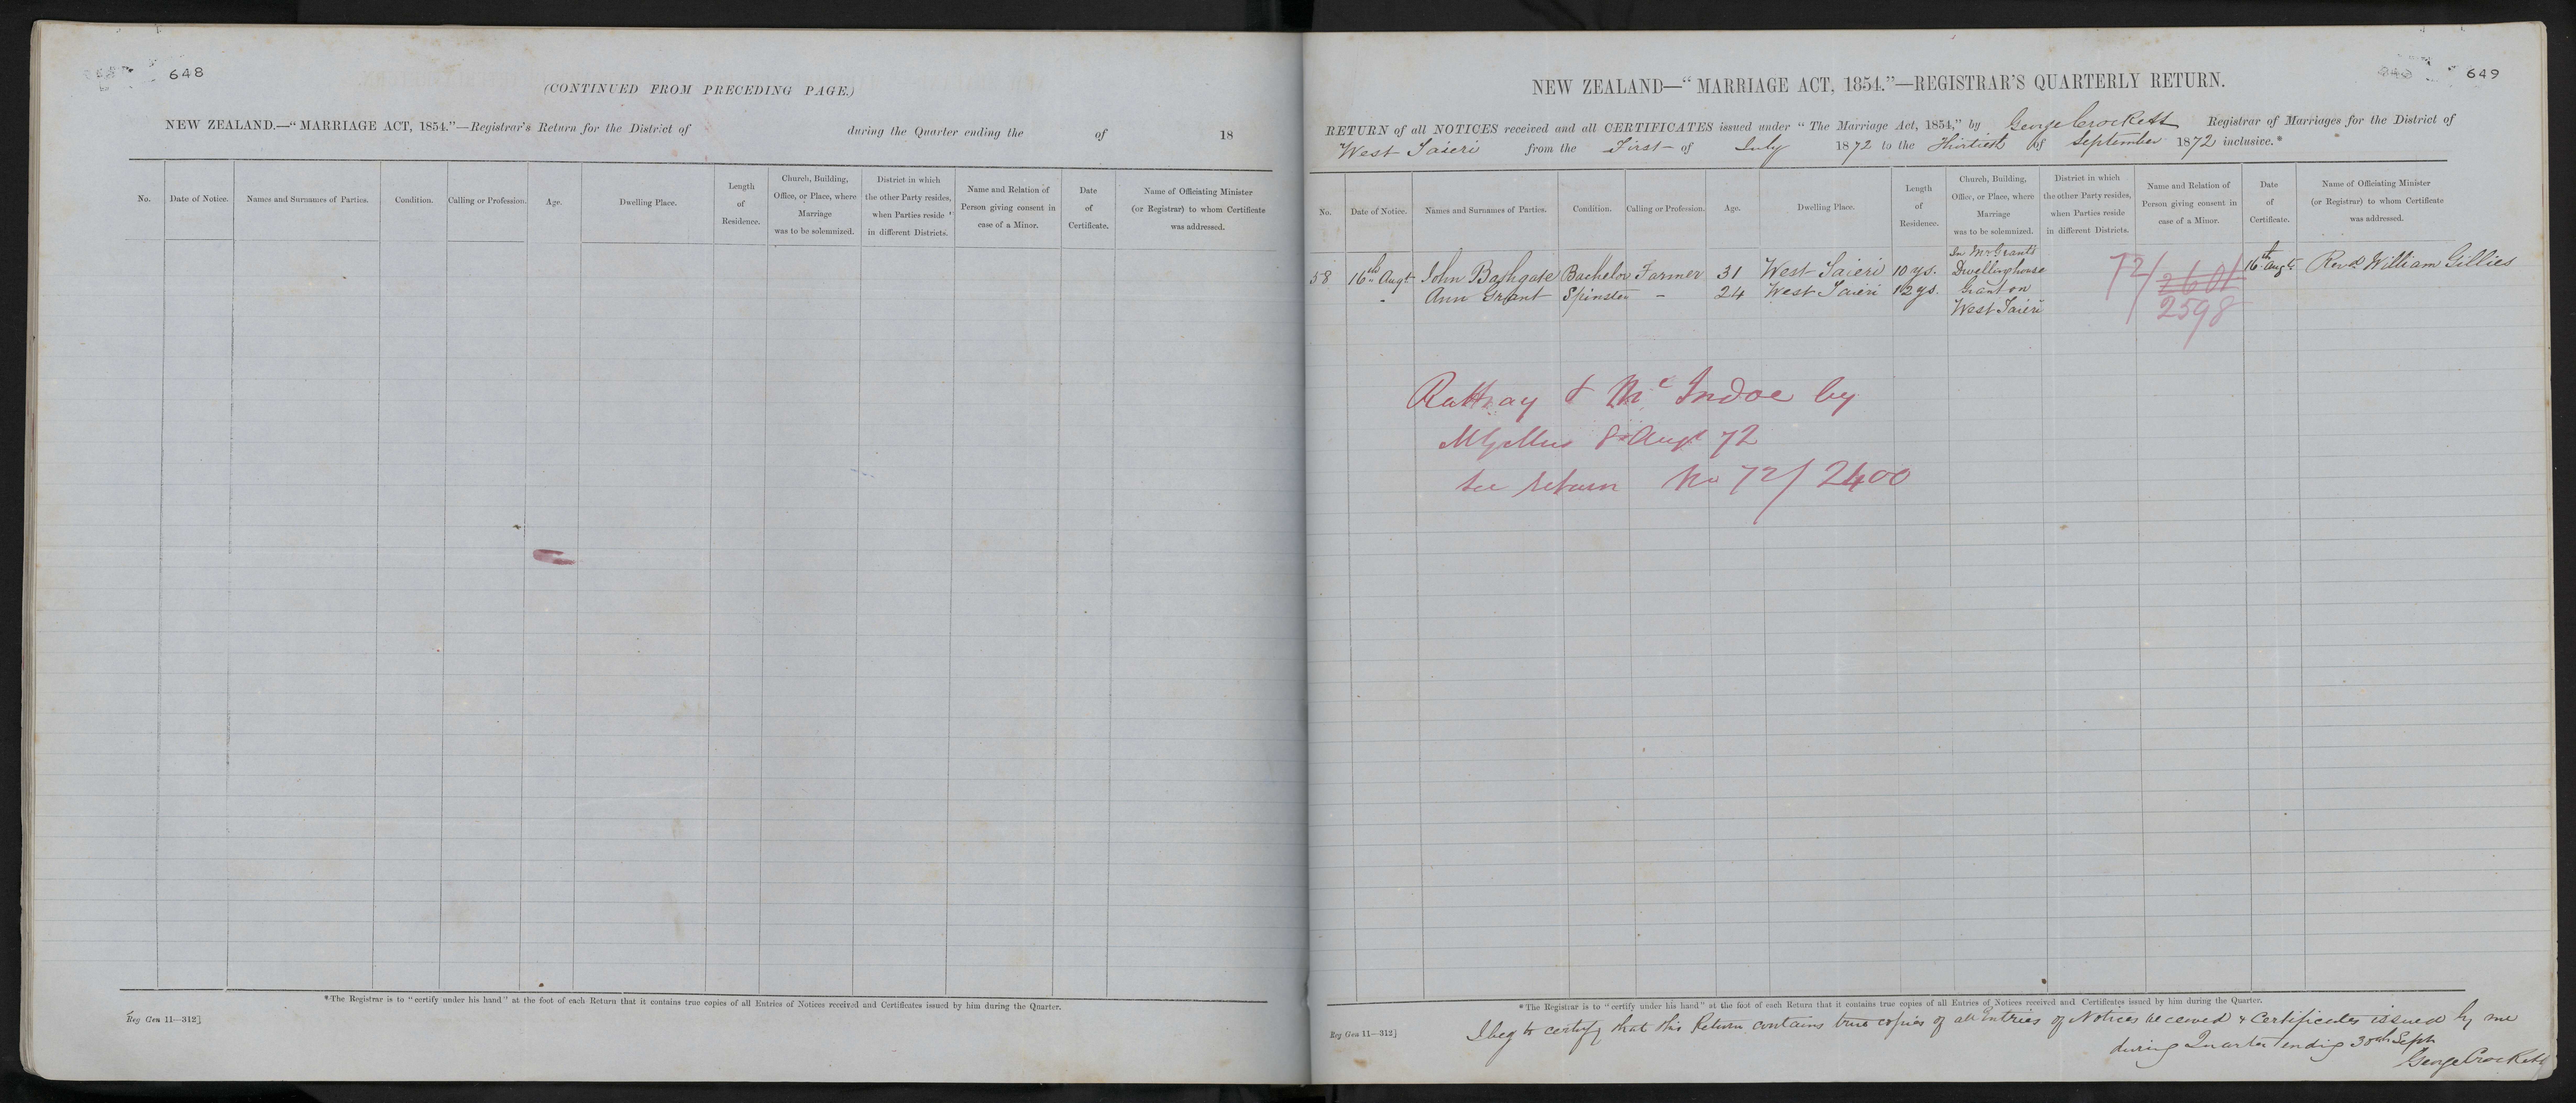 648
(CONTINUED FROM PRECEDING PAGE.)
NEW ZEALAND.—"MARRIAGE ACT, 1854."—Registrar's Return for the District of during the Quarter ending the of 18
No. Date of Notice. Names and Surnames of Parties. Condition. Calling or Profession. Age. Dwelling Place. Length of Residence. Church, Building, Office, or Place, where Marriage was to be solemnized. District in which the other Party resides, when Parties reside in different Districts. Name and Relation of Person giving consent in case of a Minor. Date of Certificate. Name of Officiating Minister (or Registrar) to whom Certificate was addressed.
*The Registrar is to "certify under his hand" at the foot of each Return that it contains true copies of all Entries of Notices received and Certificates issued by him during the Quarter.
Reg Gen 11—312]
649
NEW ZEALAND—"MARRIAGE ACT, 1854."—REGISTRAR'S QUARTERLY RETURN.
RETURN of all NOTICES received and all CERTIFICATES issued under "The Marriage Act, 1854," by George Crockett Registrar of Marriages for the District of
West Taieri from the First of July 1872 to the Thirtieth of September 1872 inclusive.*
No. Date of Notice. Names and Surnames of Parties. Condition. Calling or Profession. Age. Dwelling Place. Length of Residence. Church, Building, Office, or Place, where Marriage was to be solemnized. District in which the other Party resides, when Parties reside in different Districts. Name and Relation of Person giving consent in case of a Minor. Date of Certificate. Name of Officiating Minister (or Registrar) to whom Certificate was addressed.
In Mr Grants
58 16th Augt John Bathgate Bachelor Farmer 31 West Taieri 10 ys. Dwellinghouse 72/2601 16th Augt Revd William Gillies
" Ann Grant Spinster - 24 West Taieri 12 ys. Granton 2598
West Taieri
Rattray & McIndoe by
8 Augt 72
see return No 72/2400
*The Registrar is to "certify under his hand" at the foot of each Return that it contains true copies of all Entries of Notices received and Certificates issued by him during the Quarter.
Reg Gen 11—312]
I beg to certify that this Return contains true copies of all Entries of Notices received & Certificates issued by me
during Quarter ending 30th Sept
George Crockett